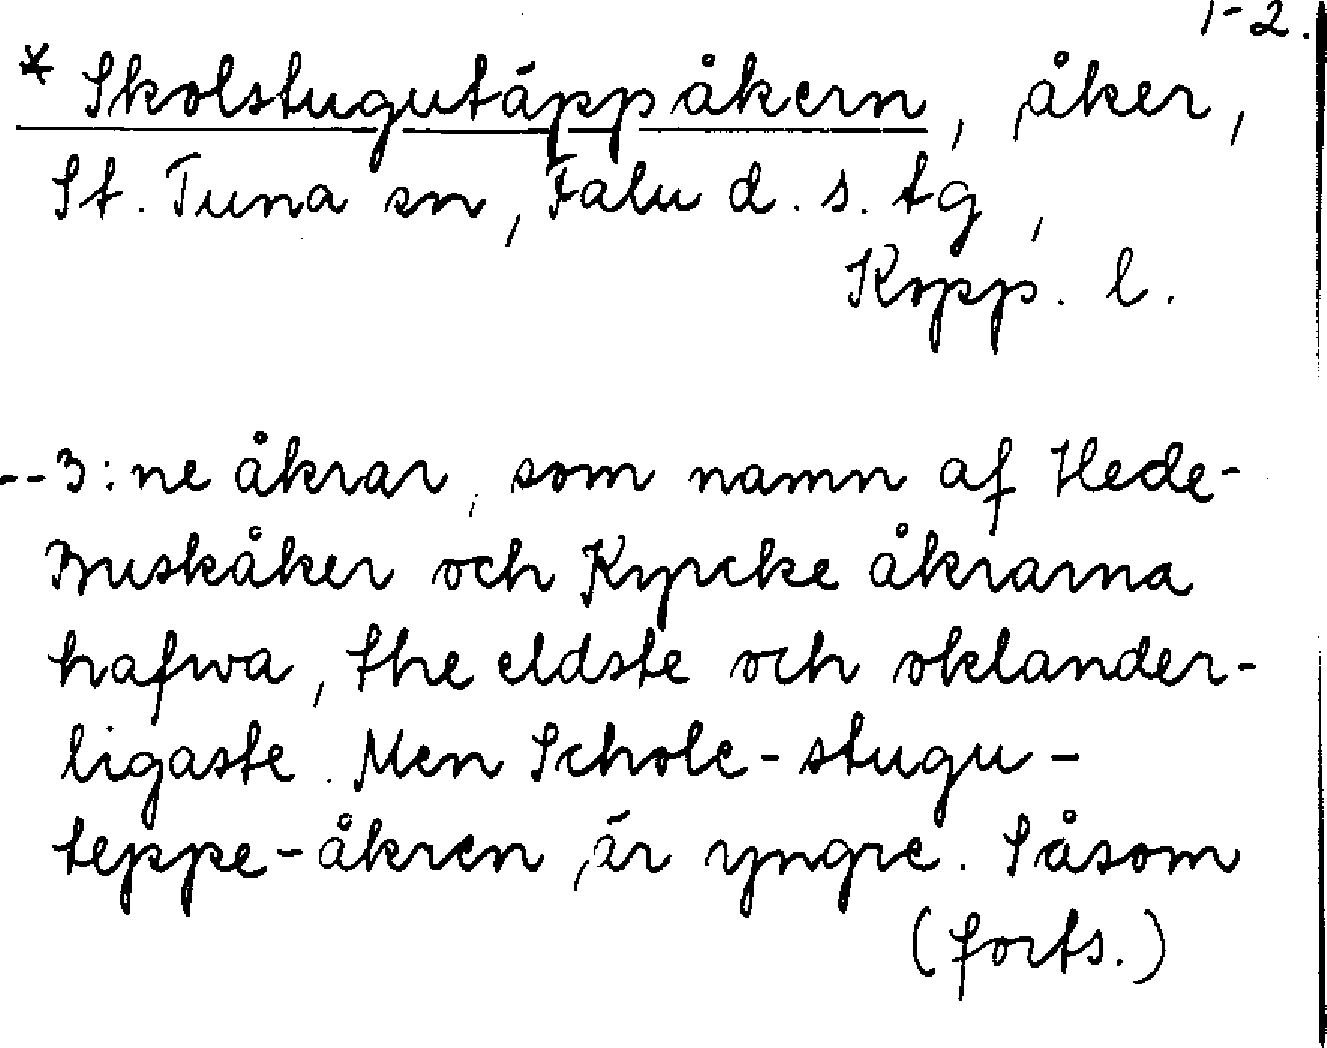 1-2.
* Skolstugutäppåkern, åker,
St. Tuna sn, Falu d. s. tg,
Kopp. l.
--3:ne åkrar, som namn af Hede-
Buskåker och Kyrcke åkrarna
hafwa, the eldste och oklander-
ligaste. Men Schole-stugu-
teppe-åkren, är yngre. Såsom
(forts.)